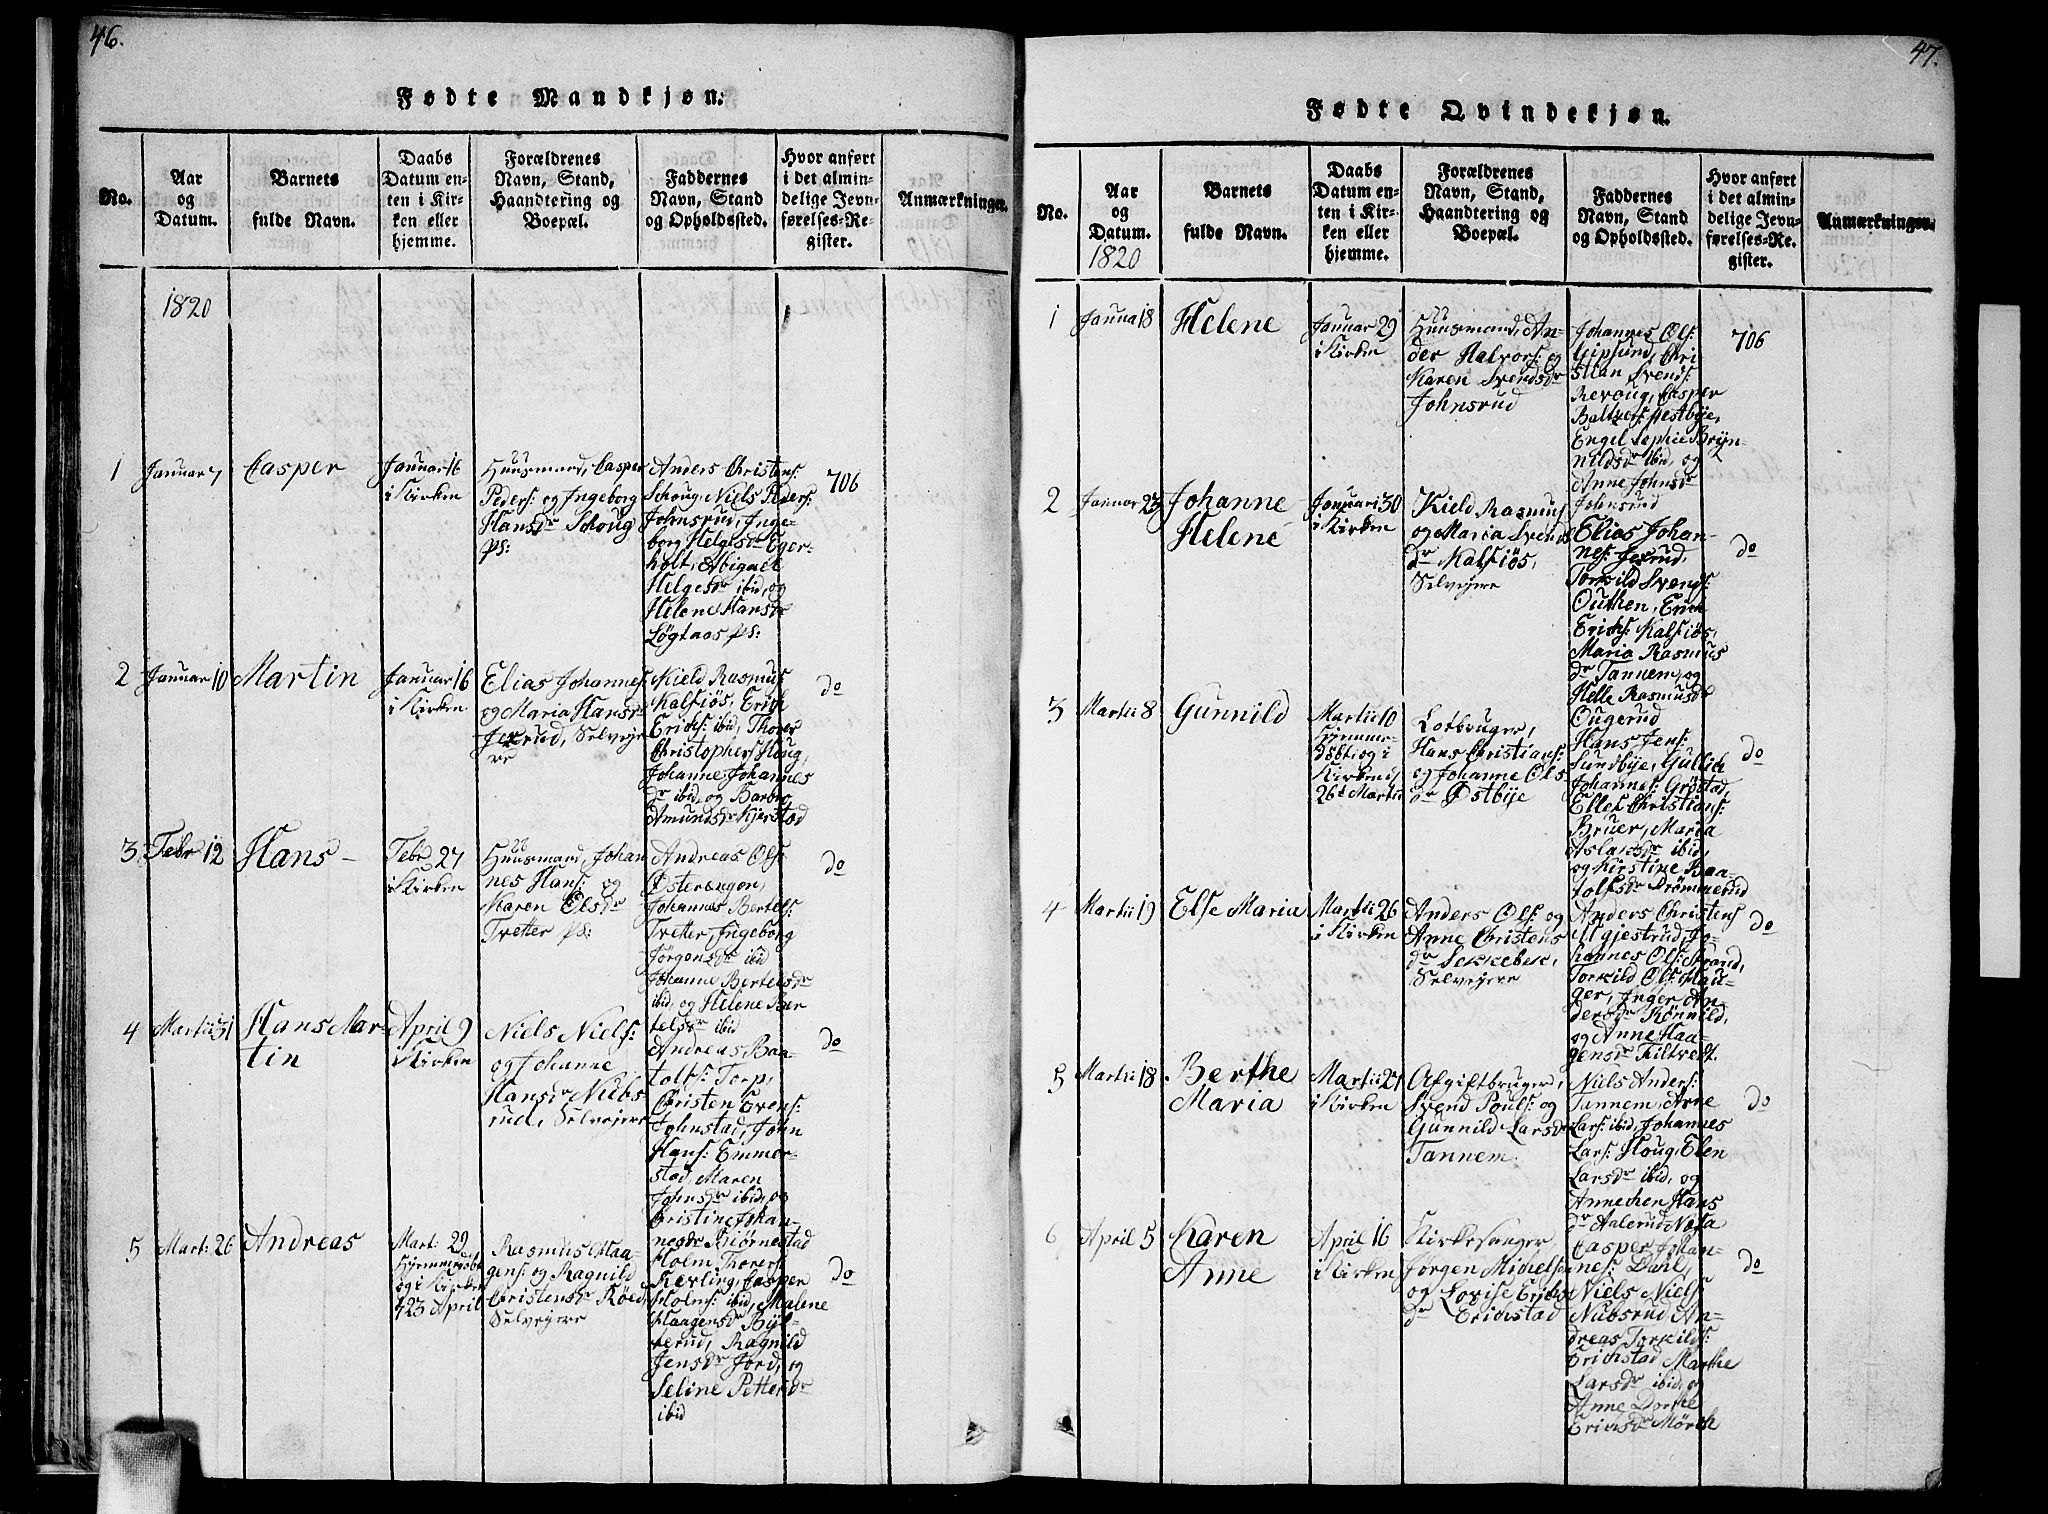 46.
Fødte Mandkjøn.
No.
Aar
og
Datum.
Barnets
fulde Navn.
Daabs
Datum en-
ten i Kir-
ken eller
hjemme.
Forældrenes
Navn, Stand,
Haandtering og
Boepæl.
Faddernes
Navn, Stand
og Opholdssted.
Hvor anført
i det almin-
delige Jevn-
førelses-Re-
gister.
Anmærkninger.
1820
1
Januar 7
Casper
Januar 16
i Kirken
Huusmand, Casper
Peders: og Ingeborg
Hansdr Schoug
Ps:
Anders Christens:
Schoug, Niels Peders:
Johnsrud, Inge-
borg Helgesdr Eger-
holt, Abigael
Helgesdr ibid, og
Helene Hansdr
Løgtaas Ps:
706
2
Januar 10
Martin
Januar 16
i Kirken
Elias Johannes
og Maria Hansdr
Jexrud, Selveje
re
Kield Rasmus
Kalsiös, Erich
Erichs: ibid, Thorer
Christophers: Houg,
Johanne Johannes
dr ibid, og Barbro
Amundsdr Kjerstad
do
3
Febr 12
Hans
Febr 27
i Kirken
Huusmand, Johan
nes Hans: og
Karen Olsdr
Tvetter Ps:
Andreas Ols:
Østerængen,
Johannes Bertels:
Tvetter, Ingeborg
Jørgensdr ibid
Johanne Bertelsdr
ibid, og Helene Ber
telsdr ibid
do
4
Martii 31
Hans Mar-
tin
April 9
i Kirken
Niels Niels:
og Johanne
Hansdr Nubs
rud, Selvejere
Andreas Baa-
tolfs: Torp,
Christen Svens:
Johnstad, John
Hans: Emmer-
stad, Maren
Johnsdr ibid, og
Christine Johan-
nesdr Biørnestad
do
5
Mart: 26
Andreas
Mart: 29
Hjemmedøbt
og i Kirken
d 23 April
Rasmus Haa-
gens: og Ragnild
Christensdr Røed,
Selvejere
Holm Thorers:
Kerling, Casper
Holms: ibid, Malene
Haagensdr Byl-
terud, Ragnild
Jensdr Jord, og
Seline Pettersdr
ibid
do
47.
Fødte Qvindekjøn.
No.
Aar
og
Datum.
1820
Barnets
fulde Navn.
Daabs
Datum en-
ten i Kir-
ken eller
hjemme.
Forældrenes
Navn, Stand,
Haandtering og
Boepæl.
Faddernes
Navn, Stand
og Opholdssted.
Hvor anført
i det almin-
delige Jevn-
førelses-Re-
gister.
Anmærkninger.
1
Janua 18
Helene
Januar 29
i Kirken
Huusmand, An-
der Halvors: og
Karen Svendsdr
Johnsrud
Johannes Ols:
Gipsund, Chri
stian Svends:
Revoug, Casper
Baltzers: Hestbye,
Engel Sophie Bryn-
nildsdr ibid, og
Anne Johnsdr
Johnsrud
706
2
Januar 23
Johanne
Helene
Januari 30
i Kirken
Kield Rasmus
og Maria Svends
dr Kalsiös,
Selvejere
Elias Johan-
nes: Jexrud,
Torkild Svends:
Outhen, Erich
Erichs: Kalsiös,
Maria Rasmus
dr Tannem, og
Helle Rasmusdr
Ougerud
do
3
Martii 8
Gunnild
Martii 10
Hjemme-
døbt, og i
Kirken d
26 Martii
Lotbruger,
Hans Christians:
og Johanne Ols
dr Østbye
Hans Jens:
Sundbye, Gullich
Johannes: Grøstad,
Ellef Christians:
Bruer, Maria
Aslaksdr ibid,
og Kirstine Baa-
tolfsdr Drømmerud
do
4
Martii 19
Else Maria
Martii 26
i Kirken
Anders Ols: og
Anne Christens
dr Sekkebek,
Selvejere
Anders Christens
Ulgjestrud, Jo-
hannes Ols: Strand,
Torkild Ols: Hau-
ger, Inger An-
dersdr Rønnild,
og Anne Haa-
gensdr Kiltvedt.
do
5
Martii 18
Berthe
Maria
Martii 27
i Kirken
Afgiftbruger,
Svend Pouls: og
Gunnild Larsdr
Tannem.
Niels Anders:
Tannem, Arne
Lars: ibid, Johannes
Lars: Houg, Elen
Larsdr ibid, og
Annechen Hans
dr Aalerud Næsa
do
6
April 5
Karen
Anne
April 16
i Kirken
Kirkesanger,
Jørgen Michelsen
og Lovise Erichs
dr Erichstad
Casper Johan-
nes: Dahl,
Niels Niels:
Nubsrud, An-
dreas Torkilds:
Erichstad, Marthe
Larsdr ibid, og
Anne Dorthe
Erichsdr Mörch
do